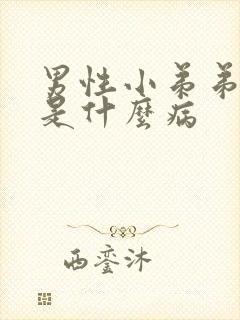 男性小弟弟
是什麼病
西銮沐